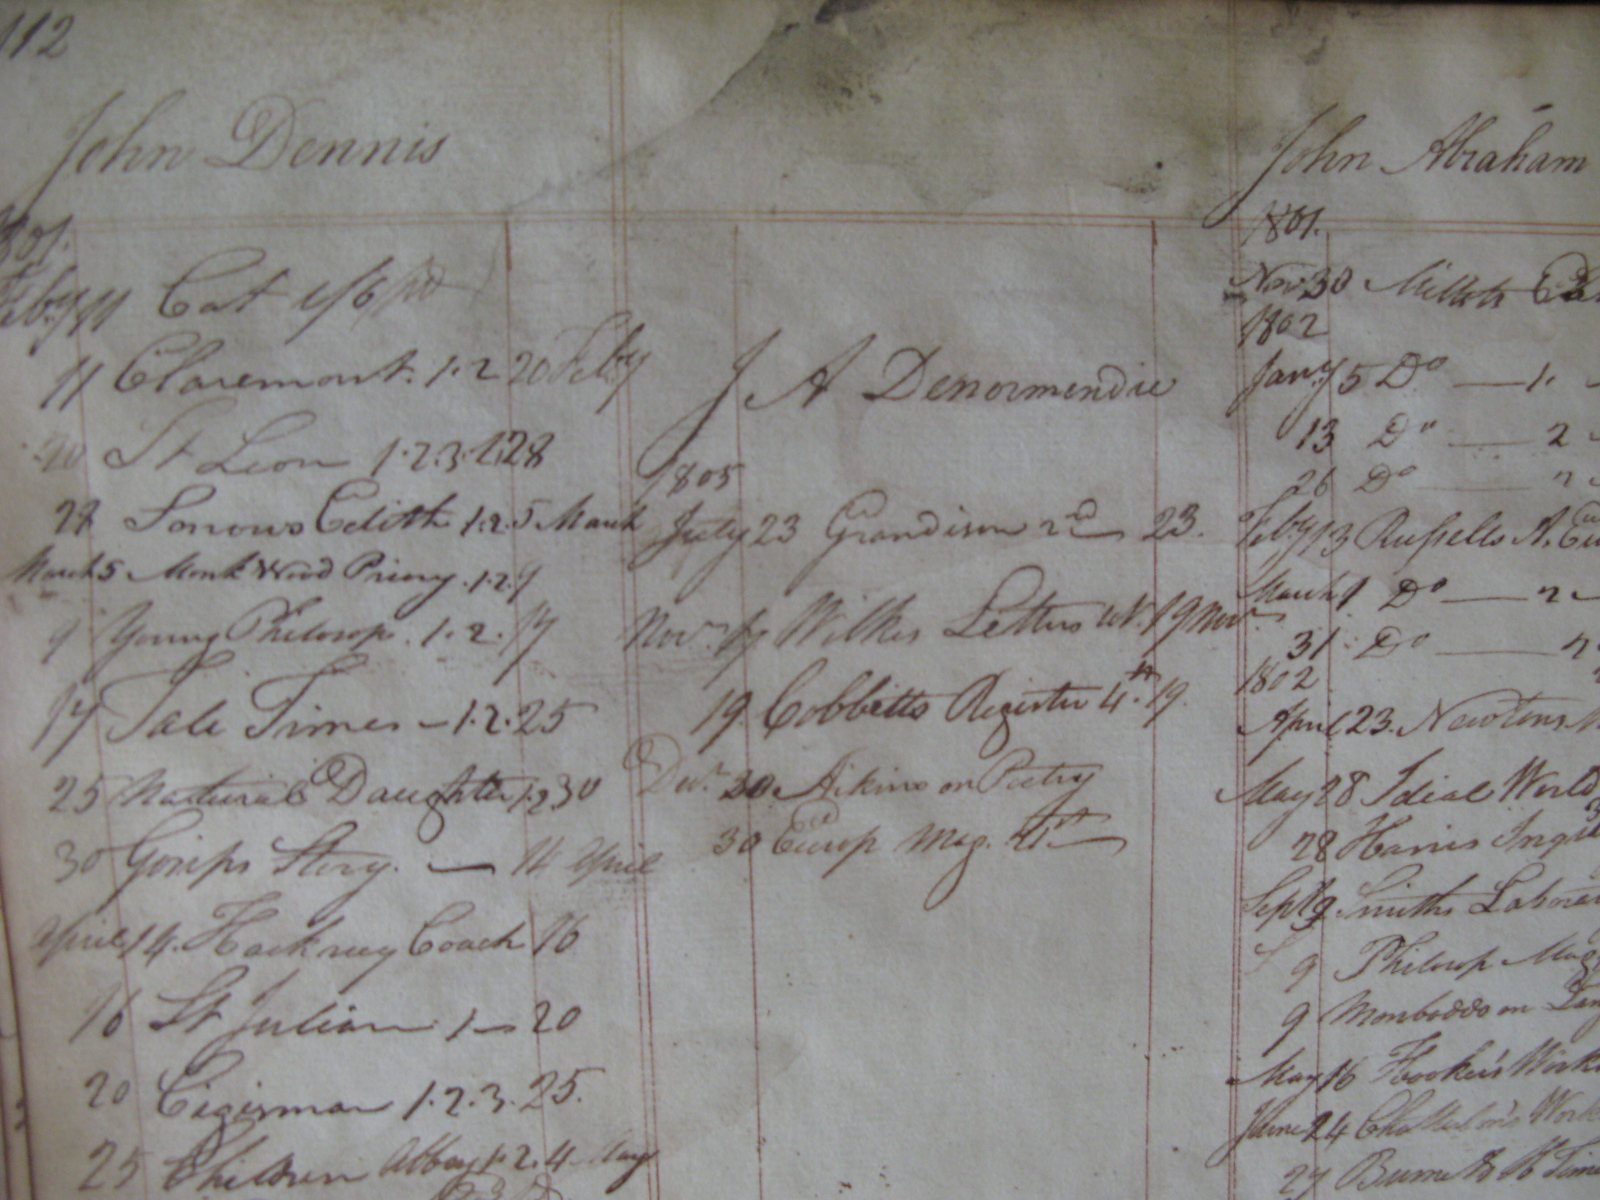 112
John Dennis
1801.
Feby 11 Cat 1/6 pd
11 Claremont. 1.2 20 Feby
20 St Leon 1.2.3. 28
28 Sorrows Edith 1.2. 5 March
March 5 Monk Wood Priory. 1.2. 9
9 Young Philosop. 1.2. 17
17 Tale Times - 1.2. 25
25 Natural Daughter 1.2 30
30 Gossips Story. — 14 April
April 14. Hackney Coach 16
16 St Julian 1 — 20
20 1.2.3. 25.
25 Children Abbey 1.2. 4 May
J A Denormendie
1805
July 23 Grandison 2nd 23.
Nov. 17 Wilkes Letters 19 Nov
19 Cobbetts Register 4th. 19.
Decr. 30. Aikins on Poetry
30 Europ Mag.
John Abraham
1801.
Nov 30
1802
Jany 5 Do — 1.
13 Do — 2
26 Do —
Feby 13 Russells A.
March 1 Do — 2
31 Do —
1802
April 23. Newtons
May 28 Ideal World
28 Harris
Sept 9. Smiths
9 Philosop Mag
9 Monboddo on
May 16 Hooker's Works
June 24
27